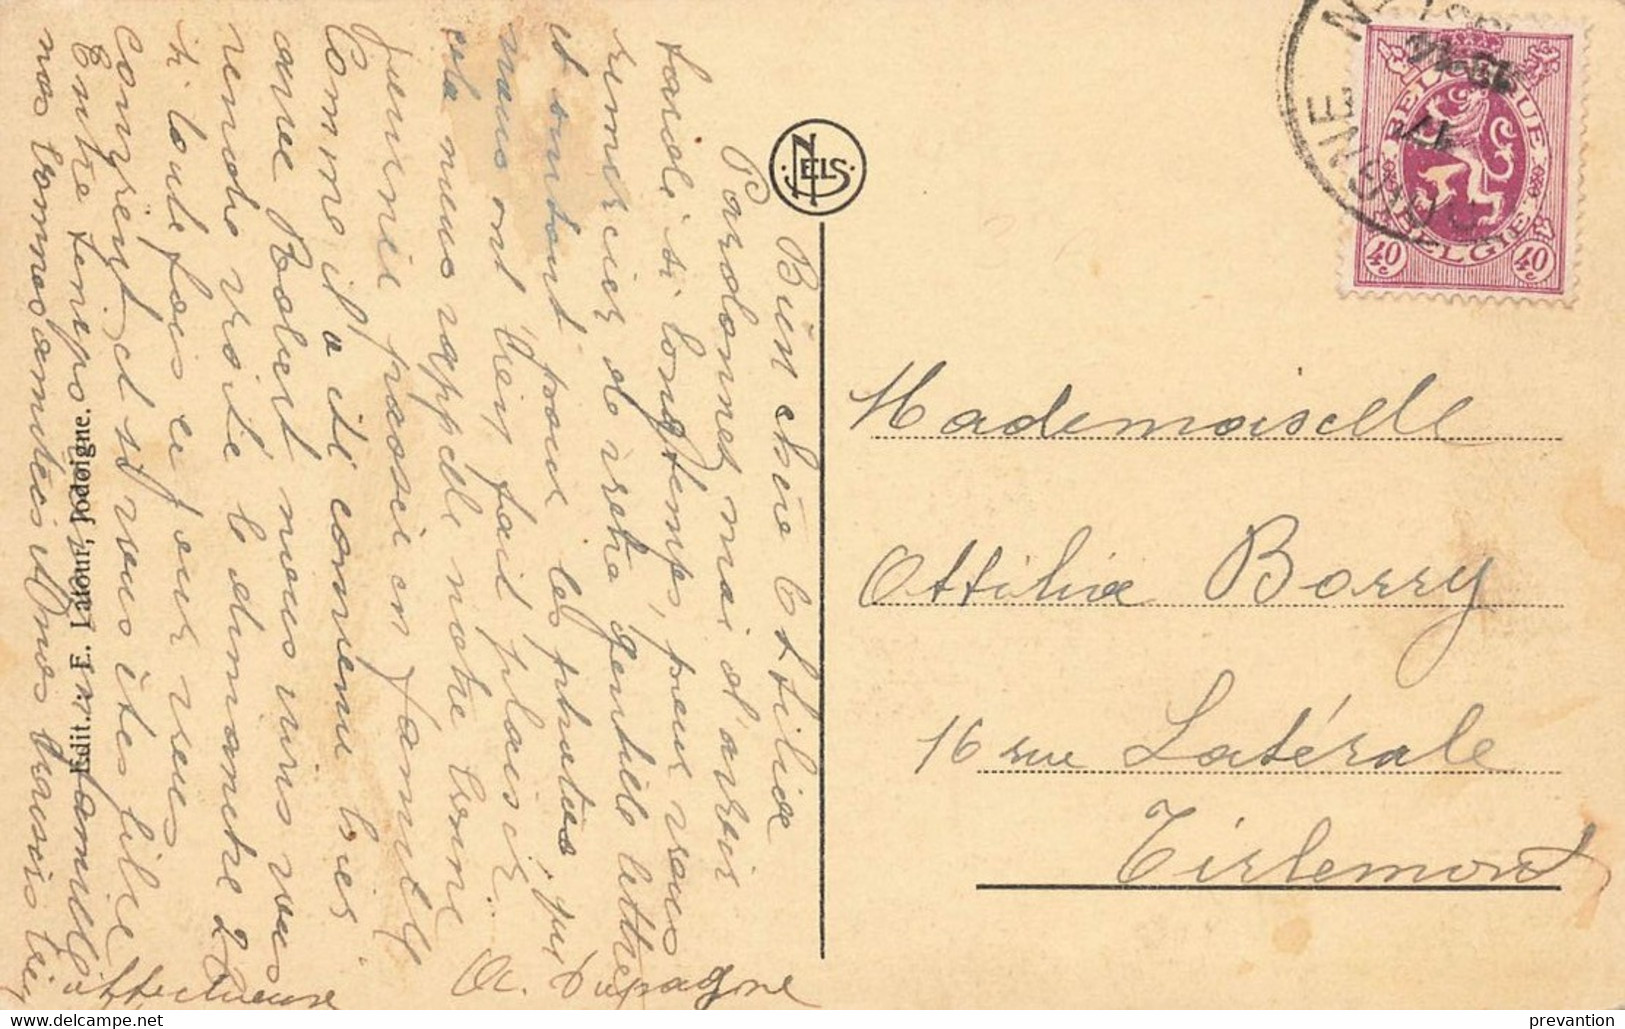 Bien chère Ottilia
Pardonnez moi d'avoir
tardé si longtemps, pour vous
remercier de votre gentille lettre
et surtout pour les photos, qui
nous ont bien fait plaisir.
cela nous rappelle notre bonne
journée passée en famille
Comme il a été convenu hier
avec Robert nous irons vous
rendre visite le dimanche 26
si toutefois ce jour vous
convient et si vous êtes libre
Entre temps
nos bonnes amitiés
affectueuse
A. Dupagne
Edit. : E. Latour, Jodoigne.
NELS
BELGIQUE
BELGIE
40 c
40 c
Mademoiselle
Ottilia Borry
16 rue Latérale
Tirlemont
prevantion